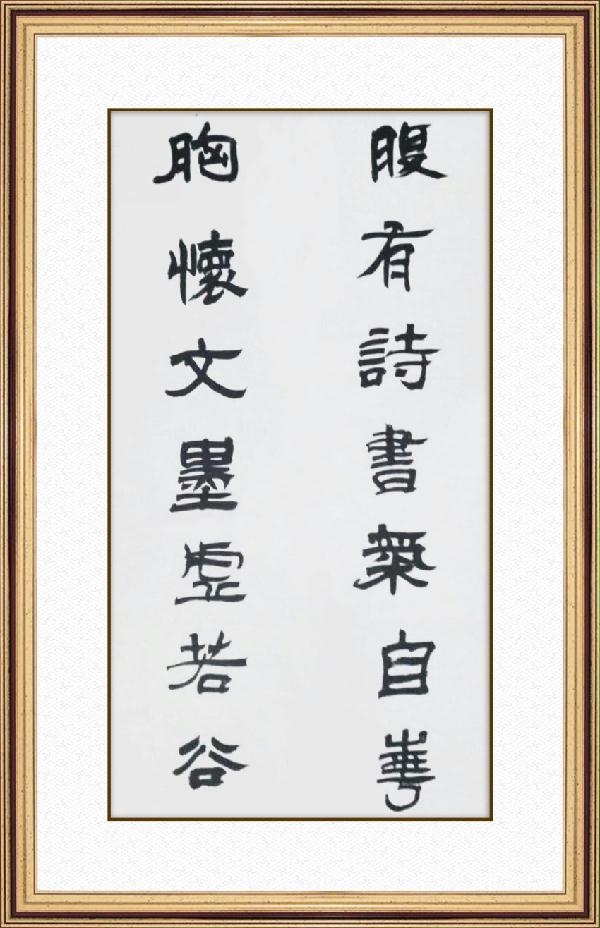 腹有詩書氣自華
胸懷文墨虛若谷